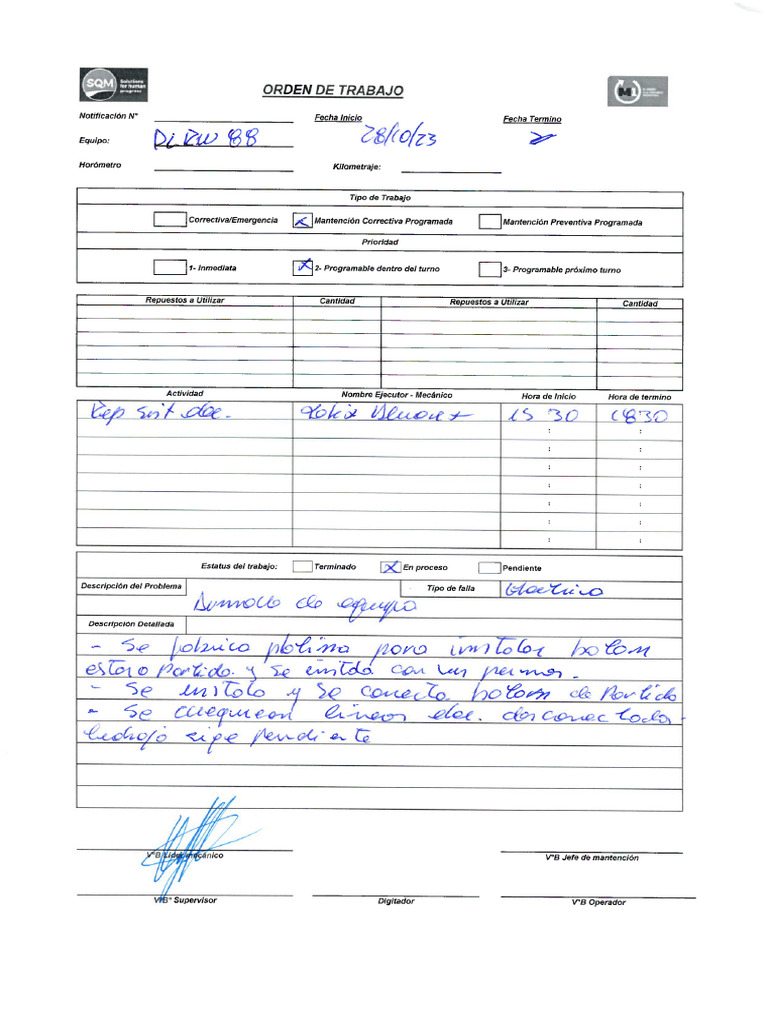 SQM Solutions for human progress
ORDEN DE TRABAJO
M1
Notificación N°
Fecha Inicio
Fecha Termino
Equipo:
88
28/10/23
Horómetro
Kilometraje:
Tipo de Trabajo
Correctiva/Emergencia
X Mantención Correctiva Programada
Mantención Preventiva Programada
Prioridad
1- Inmediata
X 2- Programable dentro del turno
3- Programable próximo turno
Repuestos a Utilizar Cantidad Repuestos a Utilizar Cantidad
Actividad Nombre Ejecutor - Mecánico Hora de Inicio Hora de termino
Rep sist elec. 15 30 18 30
Estatus del trabajo: Terminado X En proceso Pendiente
Descripción del Problema Tipo de falla
de equipo
Descripción Detallada
- Se fabrico platina para instalar
y se instala con sus pernos.
- Se instalo y se conecta de Partido
- Se chequean lineas elec. desconectada
sige pendiente
V°B Líder mecánico
V°B Jefe de mantención
V°B° Supervisor
Digitador
V°B Operador